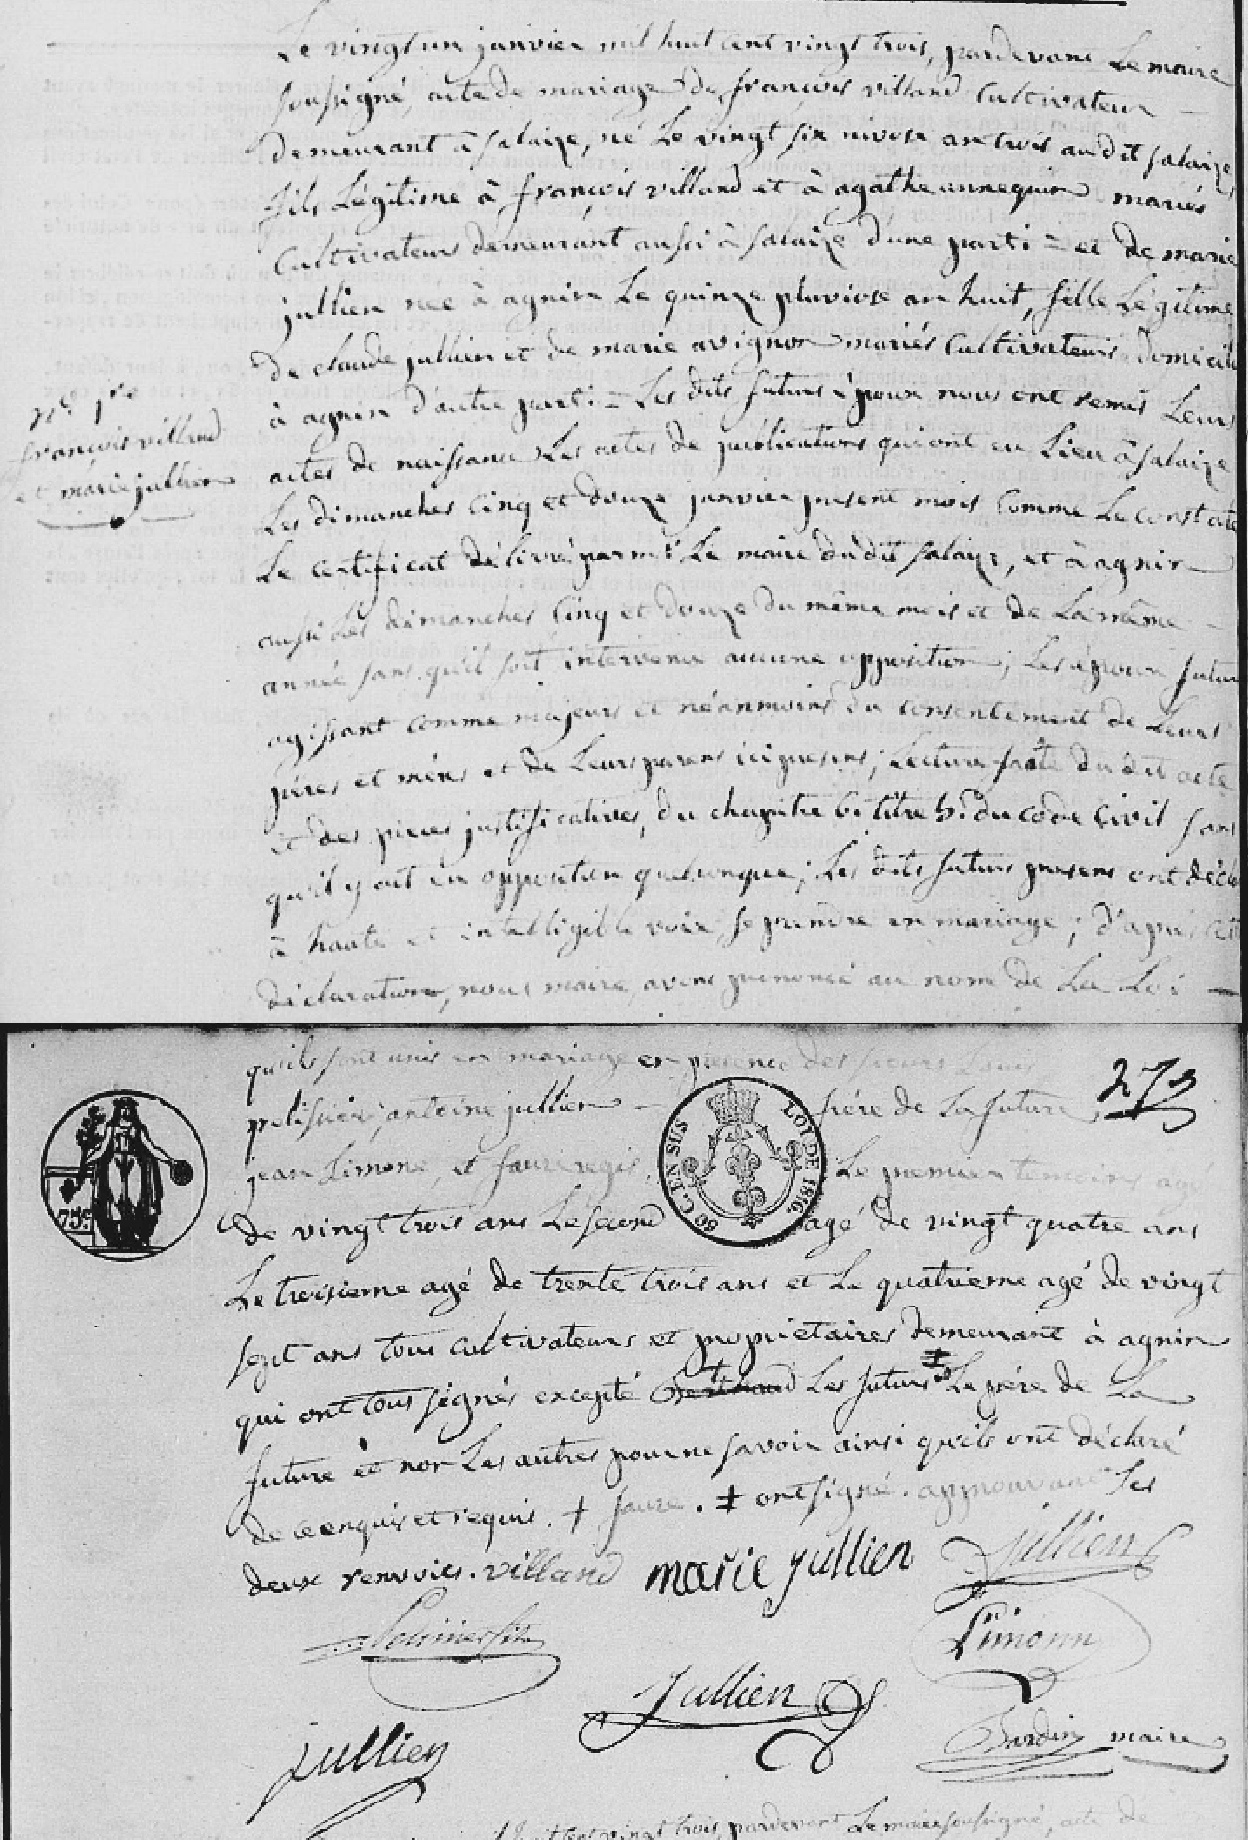 Le vingt un janvier mil huit cent vingt trois, pardevant Le maire
soussigné, acte de mariage de françois villand Cultivateur
demeurant à Salaize, né Le vingt six nivose an trois audit Salaize,
fils Légitime à françois villand et à agathe annequin mariés
Cultivateurs demeurant aussi à Salaize d'une parti = et de marie
jullien née à agnin Le quinze pluviose an huit, fille Légitime
de claude jullien et de marie avignon mariés Cultivateurs domicilié
à agnin d'autre parti = Les dits futurs époux nous ont remis Leurs
actes de naissance Les actes de publications qui ont eu Lieu à Salaize
Les dimanches Cinq et douze janvier présent mois Comme Le constate
Le certificat délivré par mr Le maire du dit Salaize, et à agnin
aussi Les dimanches Cinq et douze du même mois et de La même
année sans qu'il soit intervenu aucune opposition; Les époux futurs
agissant comme majeurs et néanmoins du consentement de Leurs
pères et mères et de Leurs parens ici présens; Lecture faite du dit acte
et des pièces justificatives, du chapitre 6 titre 5 du code Civil sans
qu'il y ait eu opposition quelconque; Les dits futurs présens ont déclaré
à haute et intelligible voix se prendre en mariage; d'après cette
déclaration, nous maire, avons prononcé au nom de La Loi
n° 1er
françois villand
et marie jullien
qu'ils sont unis en mariage en présence des sieurs Louis
273
antoine jullien frère de La future,
jean Limone, et faure regis, Le premier témoins agé
de vingt trois ans Le second agé de vingt quatre ans
Le troisieme agé de trente trois ans et Le quatrieme agé de vingt
sept ans tous cultivateurs et propriétaires demeurant à agnin
qui ont tous signés excepté + Les futurs ‡ Le père de La
future et non Les autres pour ne savoir ainsi qu'ils ont déclaré
de ce enquis et requis. + faure. ‡ ont signé. approuvant Les
deux renvois. villand marie jullien Jullien
Limonn
Jullien
Jullien
Bardin maire
75c
50 C. EN SUS
LOI DE 1816
huit cent vingt trois, pardevant Le maire soussigné, acte de